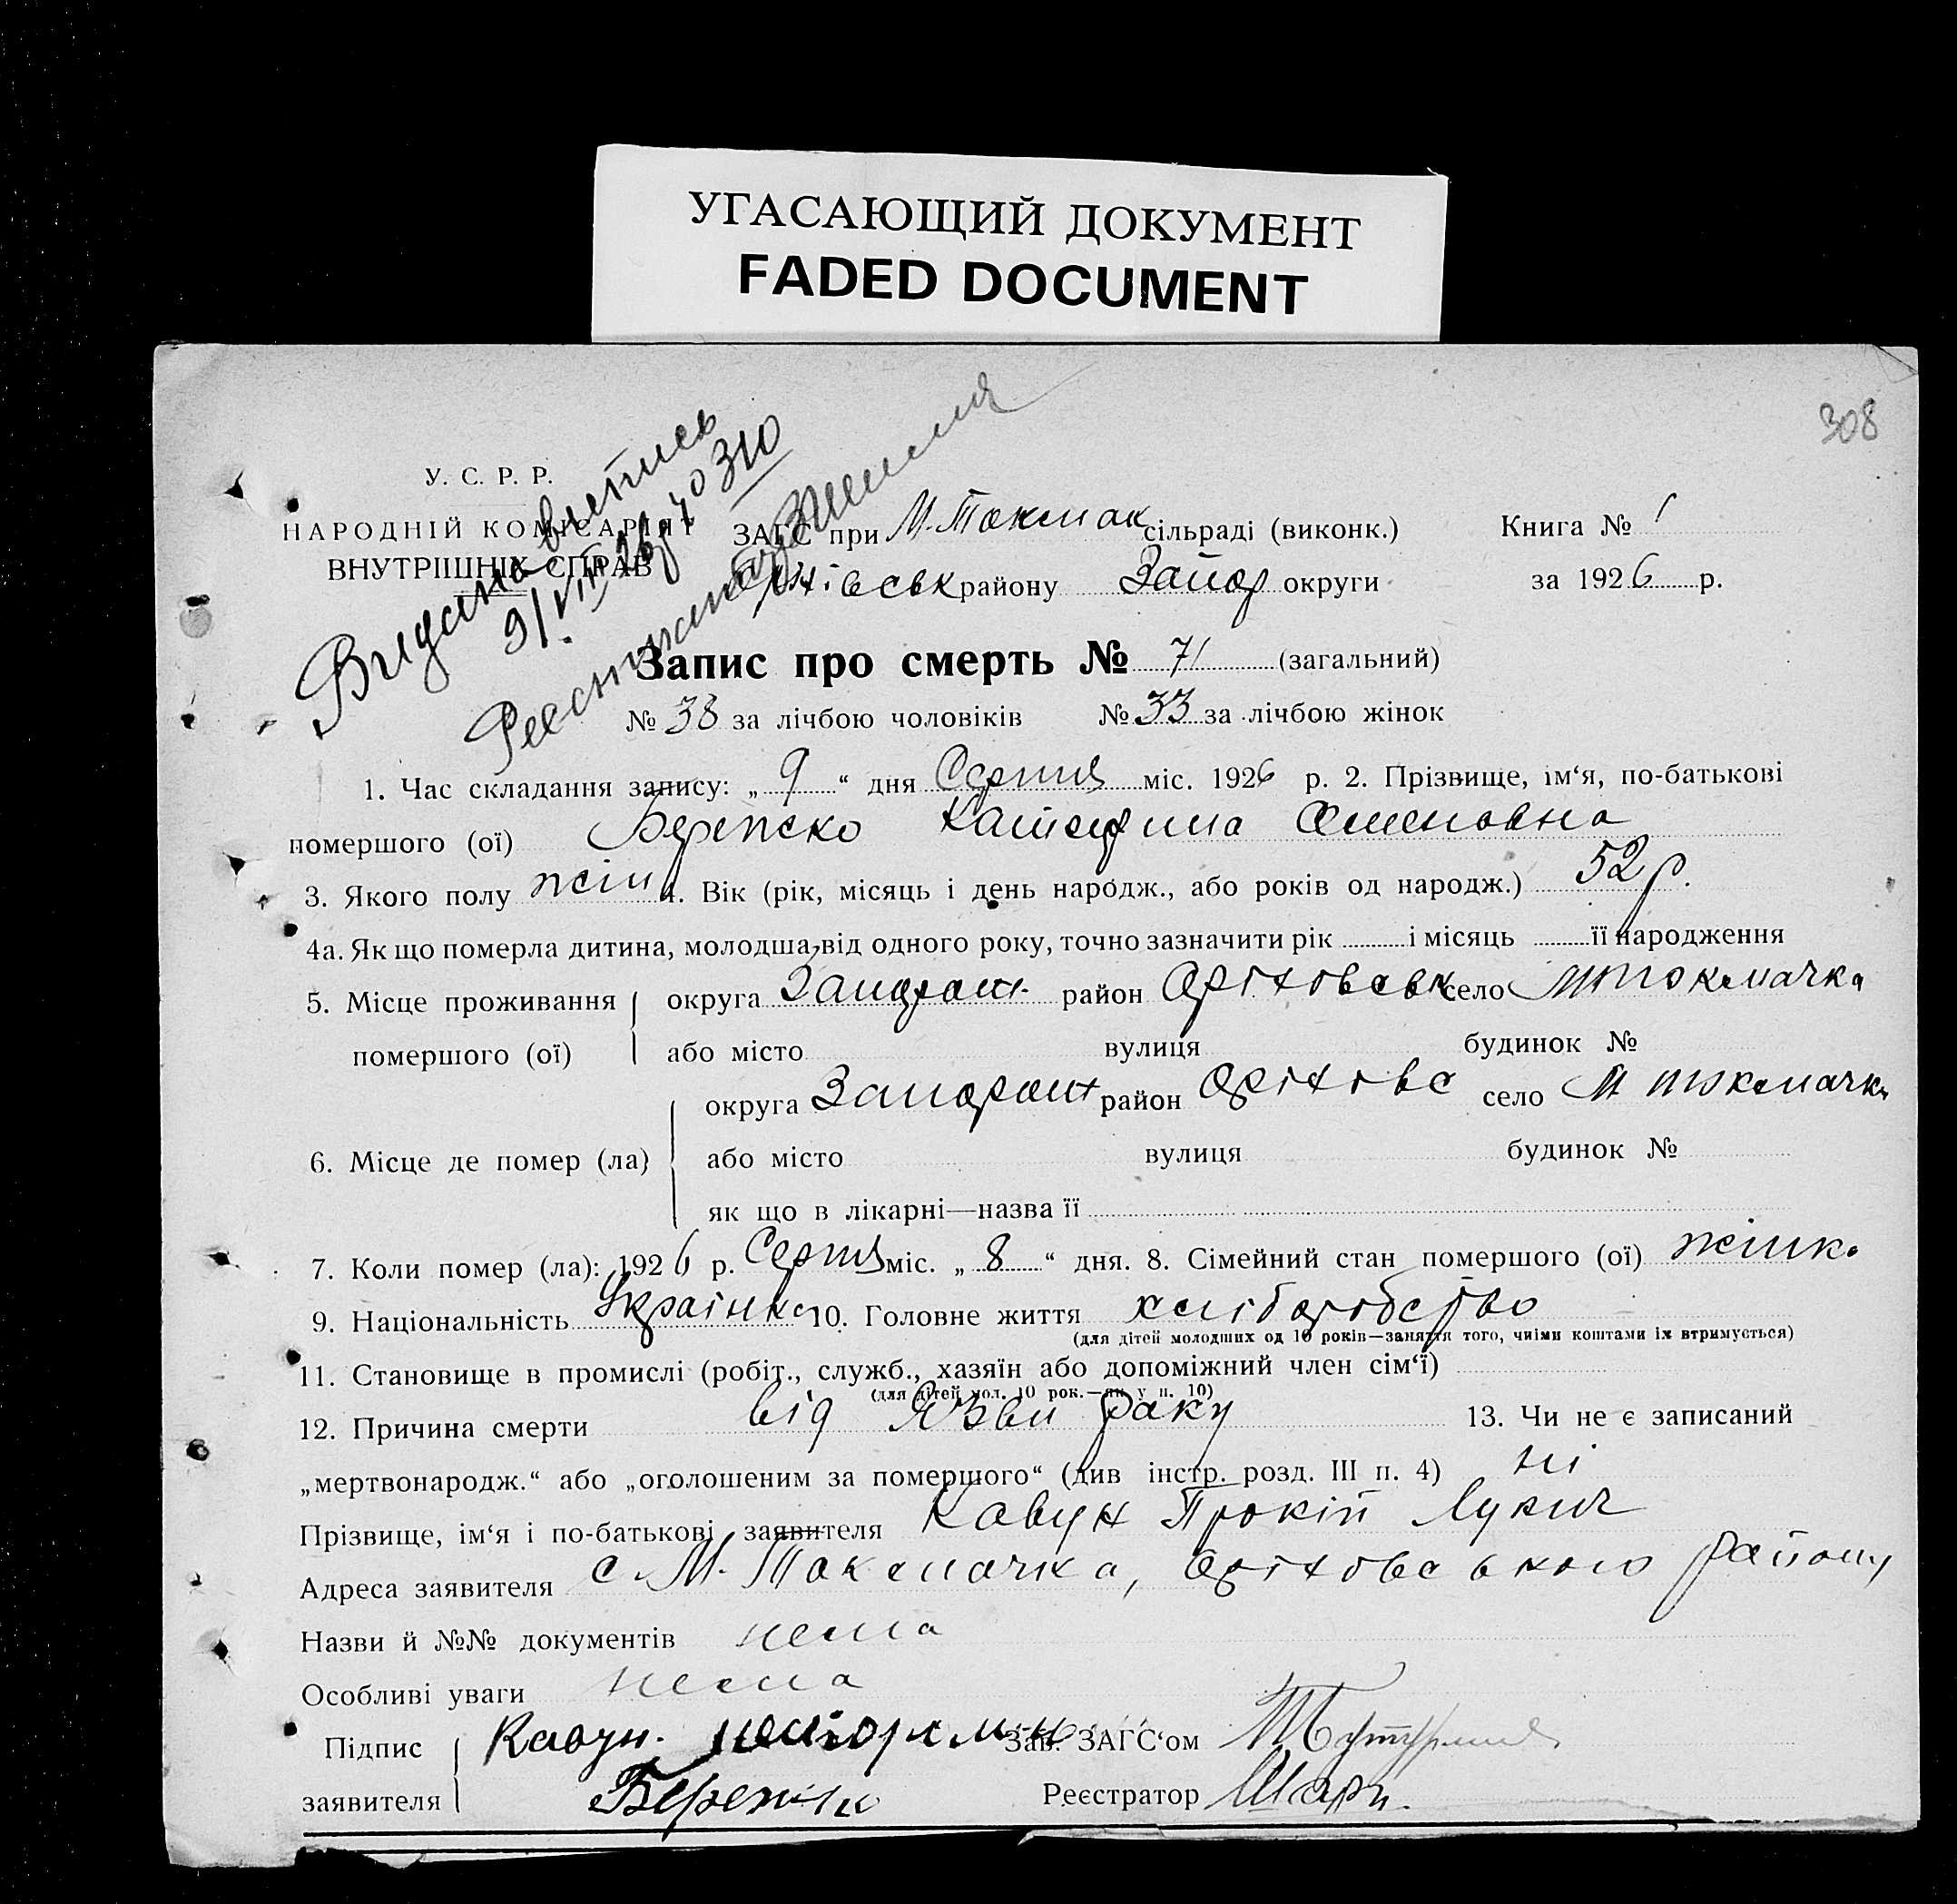 УГАСАЮЩИЙ ДОКУМЕНТ
FADED DOCUMENT
308
У. С. Р. Р.
НАРОДНІЙ КОМІСАРІЯТ
ВНУТРІШНІХ СПРАВ
Видана випись
9/VIII 26 р № 310
ЗАГС при М. Токмак сільраді (виконк.) Книга № 1
Оріхівськ району Запор округи за 1926 р.
Запис про смерть № 71 (загальний)
№ 38 за лічбою чоловіків № 33 за лічбою жінок
1. Час складання запису: „ 9 “ дня Серпня міс. 1926 р. 2. Прізвище, ім‘я, по-батькові
помершого (ої) Катерина Семеновна
3. Якого полу жін 4. Вік (рік, місяць і день народж., або років од народж.) 52 р.
4а. Як що померла дитина, молодша від одного року, точно зазначити рік і місяць її народження
5. Місце проживання округа Запорож район Оріховськ село М Токмачка
помершого (ої) або місто вулиця будинок №
округа Запорож район Оріховс село М токмачка
6. Місце де помер (ла) або місто вулиця будинок №
як що в лікарні—назва її
7. Коли помер (ла): 1926 р. Серпня міс. „ 8 “ дня. 8. Сімейний стан помершого (ої) жінка
9. Національність Українка 10. Головне життя хліборобство
(для дітей молодших од 10 років—заняття того, чиїми коштами їх втримується)
11. Становище в промислі (робіт., служб., хазяїн або допоміжний член сім‘ї)
(для дітей мол. 10 рок.—як у п. 10)
12. Причина смерти від Язви раку 13. Чи не є записаний
„мертвонародж.“ або „оголошеним за помершого“ (див інстр. розд. III п. 4) ні
Прізвище, ім‘я і по-батькові заявителя Кавун Прокіп Лукич
Адреса заявителя с М. Токмачка, Оріховського району
Назви й №№ документів нема
Особливі уваги нема
Підпис Кавун. Зав. ЗАГС‘ом
заявителя Реєстратор